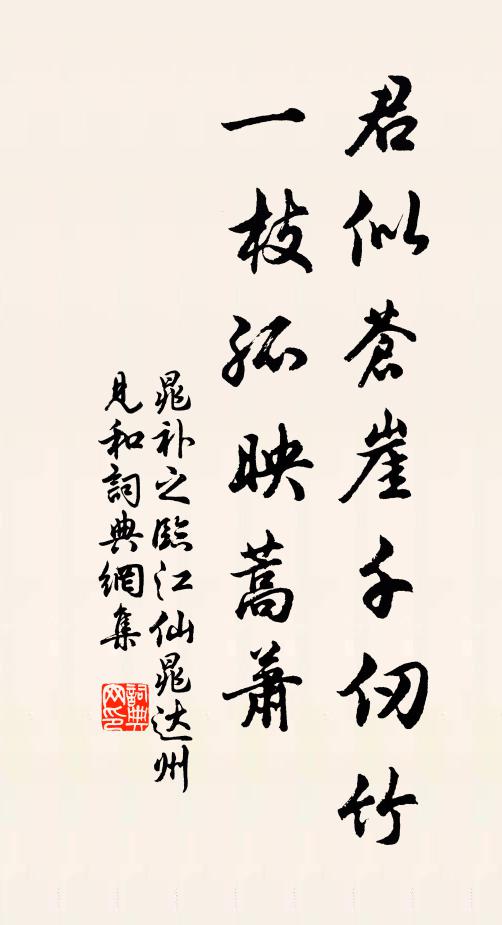 君似蒼崖千仞竹
一枝孤映蒿蕭
晁补之臨江仙晁达州
見和詞典網集
詞典网印